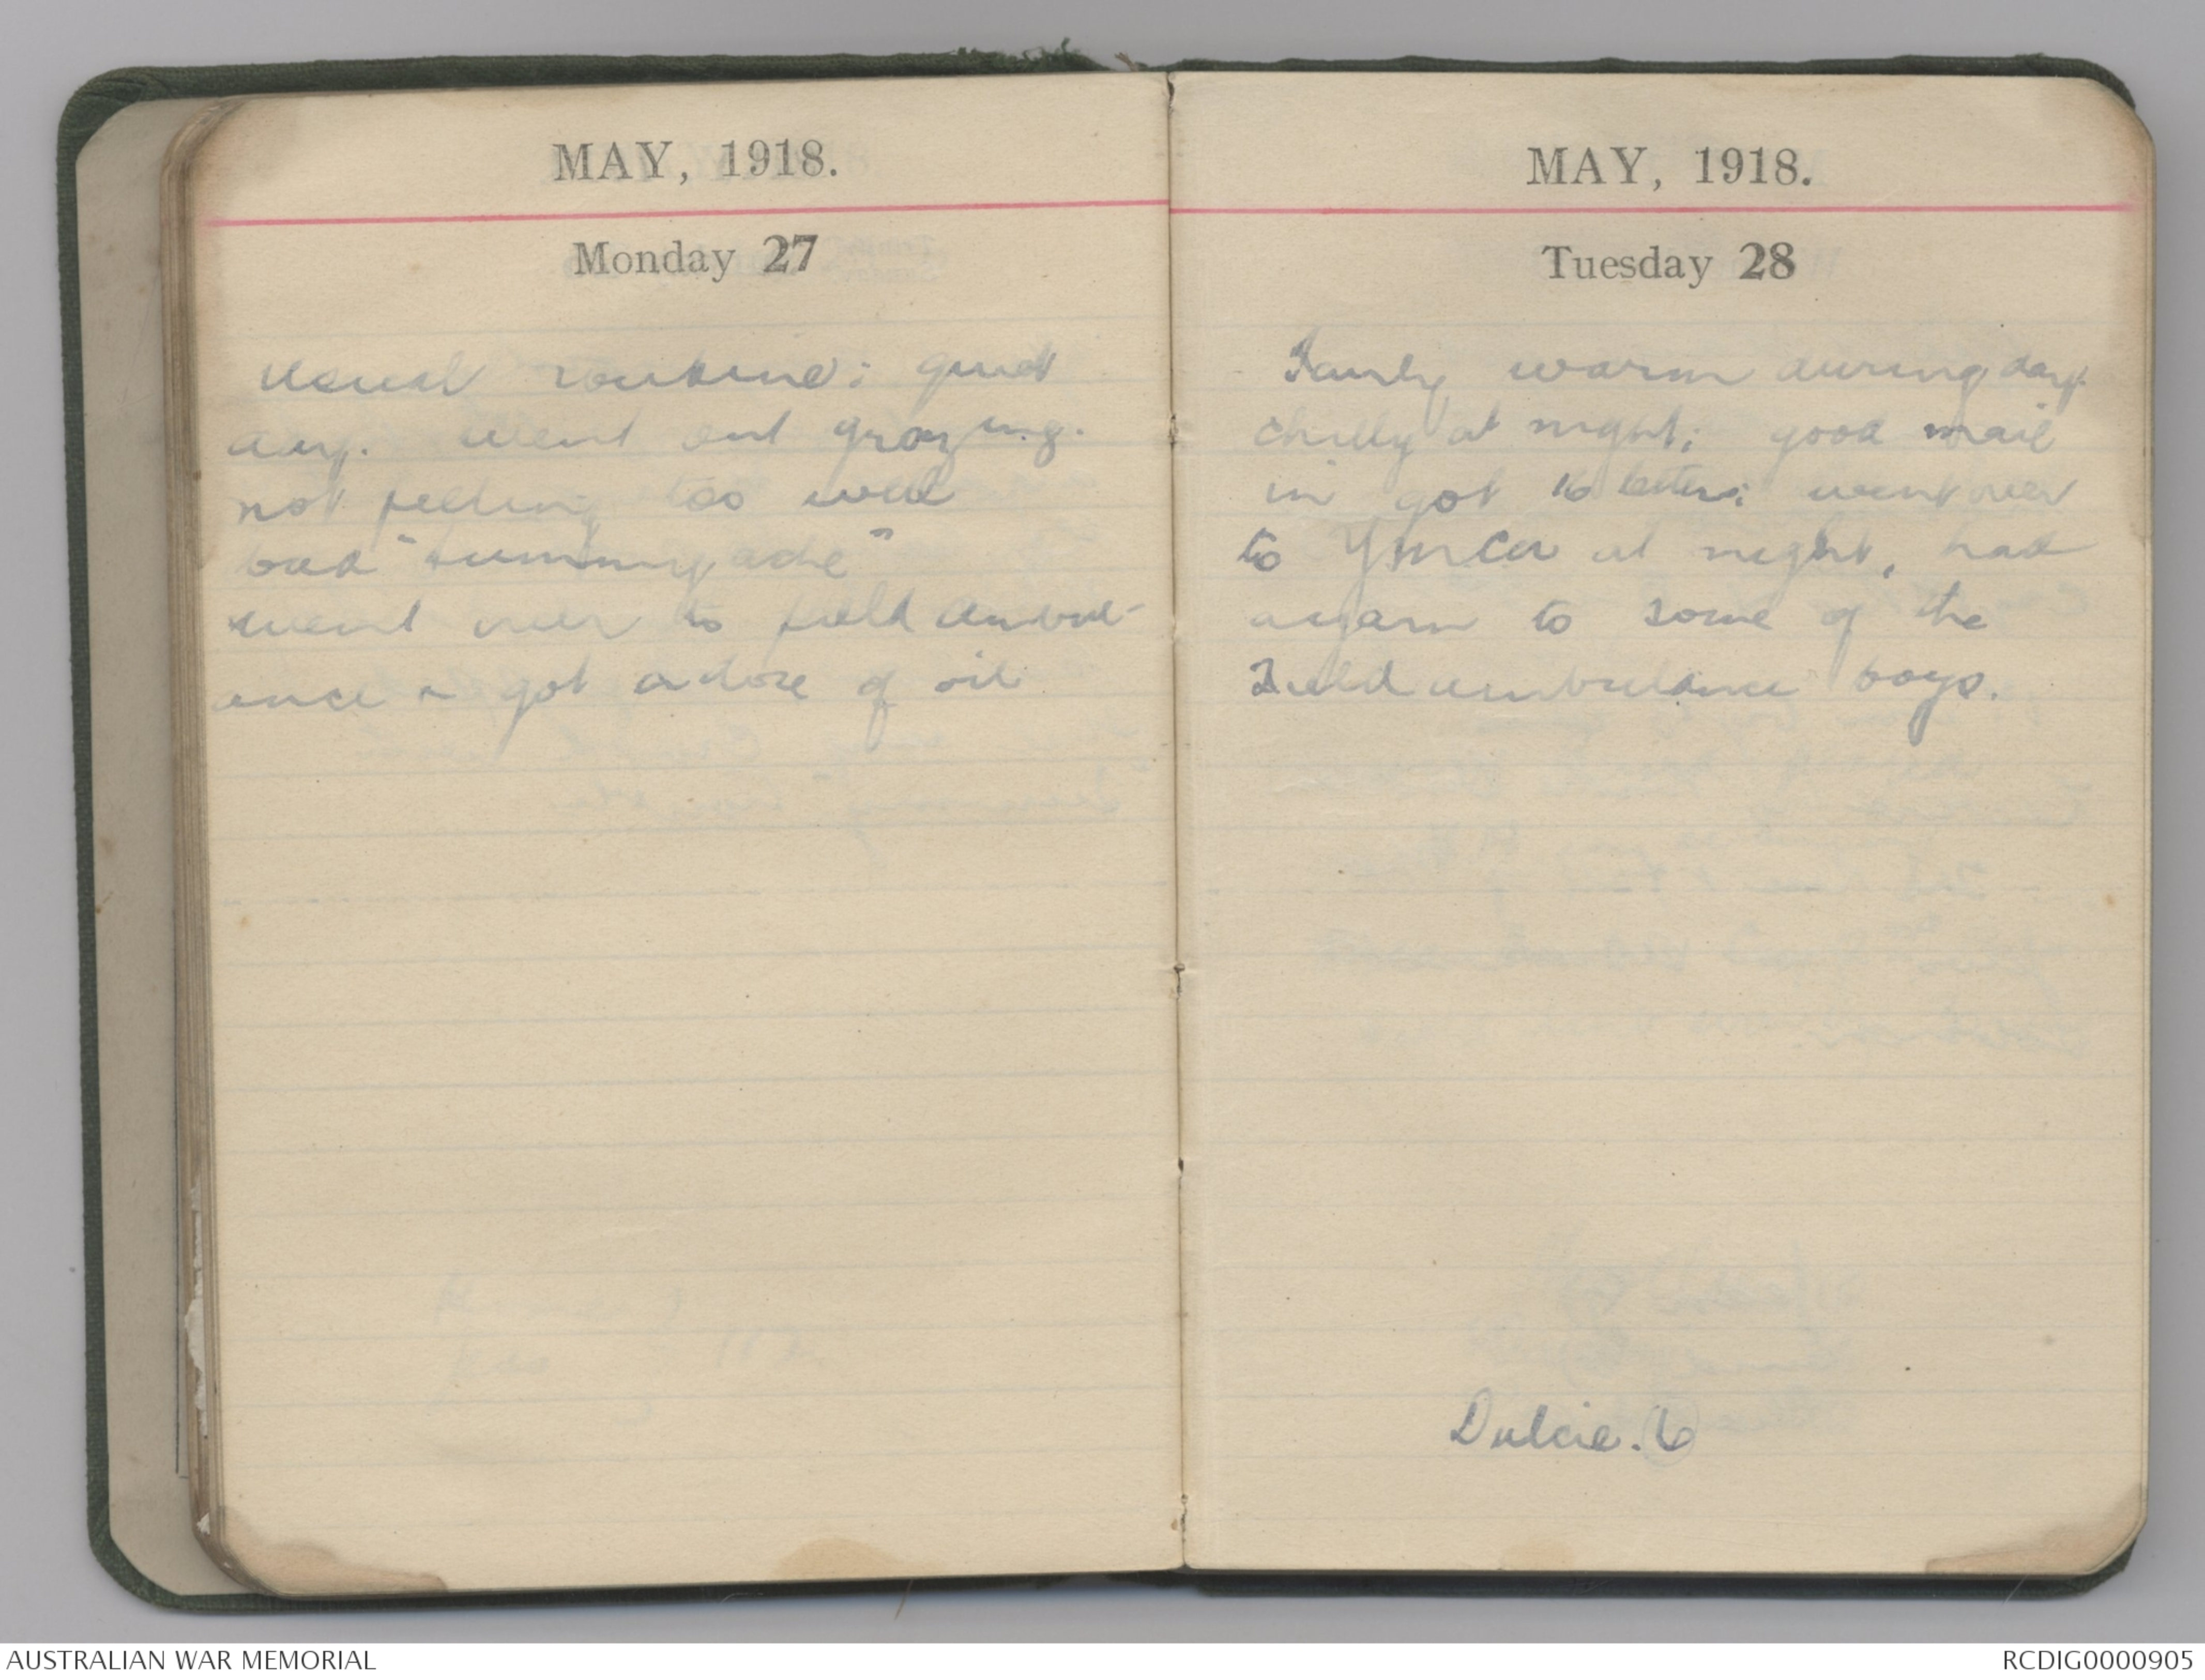 MAY, 1918.
Monday 27
Usual routine; quiet
day. Went out grazing.
not feeling too well
bad "tummy ache"
went over to field ambul-
ance & got a dose of oil
MAY, 1918.
Tuesday 28
Fairly warm during day.
chilly at night; good mail
in got 16 letters; went over
to YMCA at night, had
a yarn to some of the
Field ambulance boys.
Dulcie. 6
AUSTRALIAN WAR MEMORIAL
RCDIG0000905